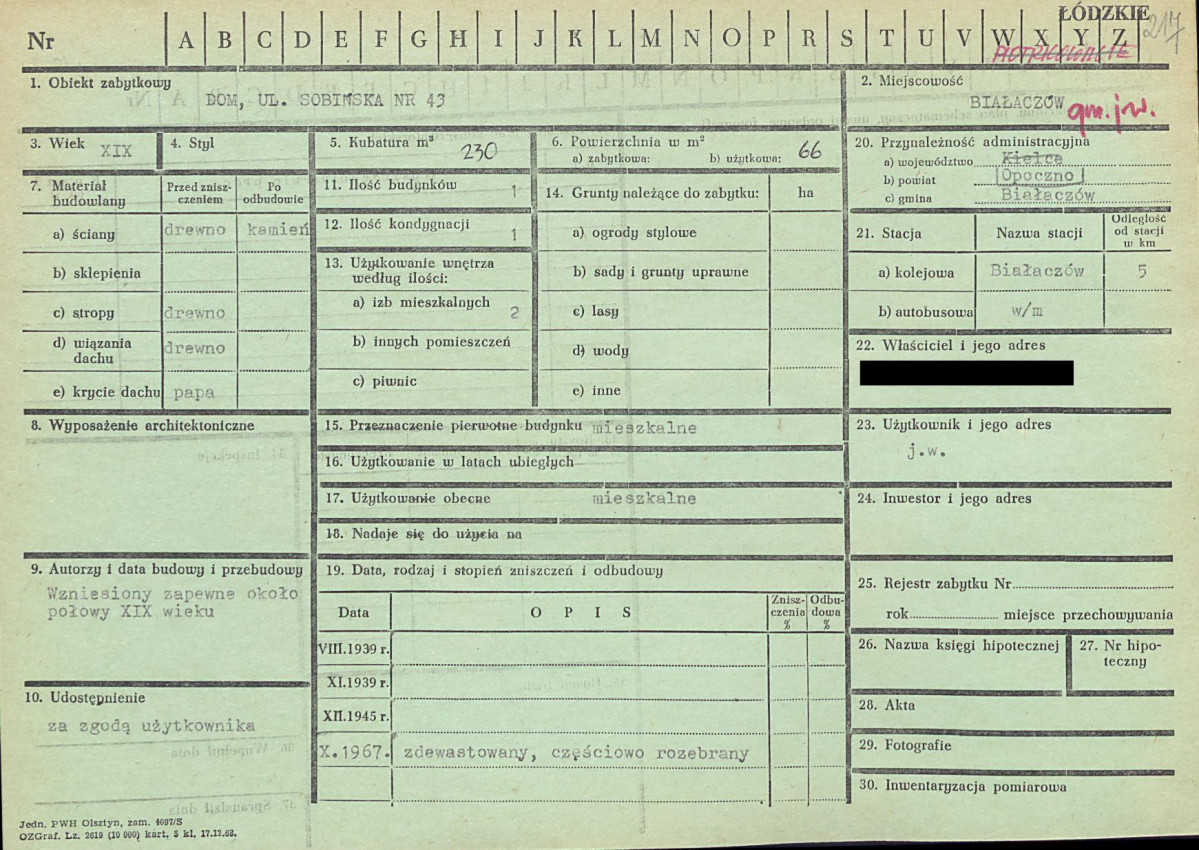 ŁÓDZKIE
217
Nr A B C D E F G H I J K L M N O P R S T U V W X Y Z
PIOTRKOWSKIE
1. Obiekt zabytkowy
DOM, UL. SOBIŃSKA NR 43
2. Miejscowość
BIAŁACZÓW
gm. j.w.
3. Wiek XIX
4. Styl
5. Kubatura m³ 230
6. Powierzchnia w m²
a) zabytkowa: b) użytkowa: 66
20. Przynależność administracyjna
a) województwo Kielce
b) powiat Opoczno
c) gmina Białaczów
7. Materiał budowlany
Przed zniszczeniem
Po odbudowie
a) ściany drewno kamień
b) sklepienia
c) stropy drewno
d) wiązania dachu drewno
e) krycie dachu papa
11. Ilość budynków 1
12. Ilość kondygnacji 1
13. Użytkowanie wnętrza według ilości:
a) izb mieszkalnych 2
b) innych pomieszczeń
c) piwnic
14. Grunty należące do zabytku: ha
a) ogrody stylowe
b) sady i grunty uprawne
c) lasy
d) wody
e) inne
21. Stacja Nazwa stacji Odległość od stacji w km
a) kolejowa Białaczów 5
b) autobusowa w/m
22. Właściciel i jego adres
8. Wyposażenie architektoniczne
15. Przeznaczenie pierwotne budynku mieszkalne
16. Użytkowanie w latach ubiegłych
17. Użytkowanie obecne mieszkalne
18. Nadaje się do użycia na
23. Użytkownik i jego adres
j.w.
24. Inwestor i jego adres
9. Autorzy i data budowy i przebudowy
Wzniesiony zapewne około
połowy XIX wieku
19. Data, rodzaj i stopień zniszczeń i odbudowy
Data O P I S Zniszczenia % Odbudowa %
VIII.1939 r.
XI.1939 r.
XII.1945 r.
X.1967. zdewastowany, częściowo rozebrany
25. Rejestr zabytku Nr
rok miejsce przechowywania
26. Nazwa księgi hipotecznej
27. Nr hipoteczny
10. Udostępnienie
za zgodą użytkownika
28. Akta
29. Fotografie
30. Inwentaryzacja pomiarowa
Jedn. PWH Olsztyn, zam. 4097/S
OZGraf. Lz. 2619 (10 000) kart. 5 kl. 17.12.68.